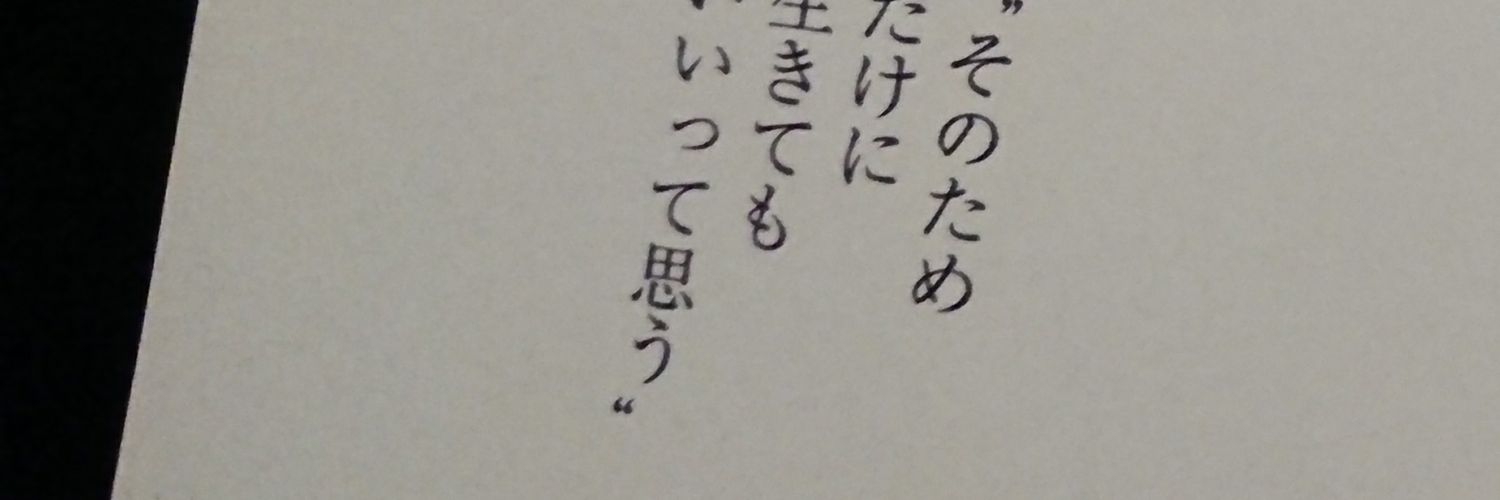 ”そのため
だけに
生きても
いいって思う“